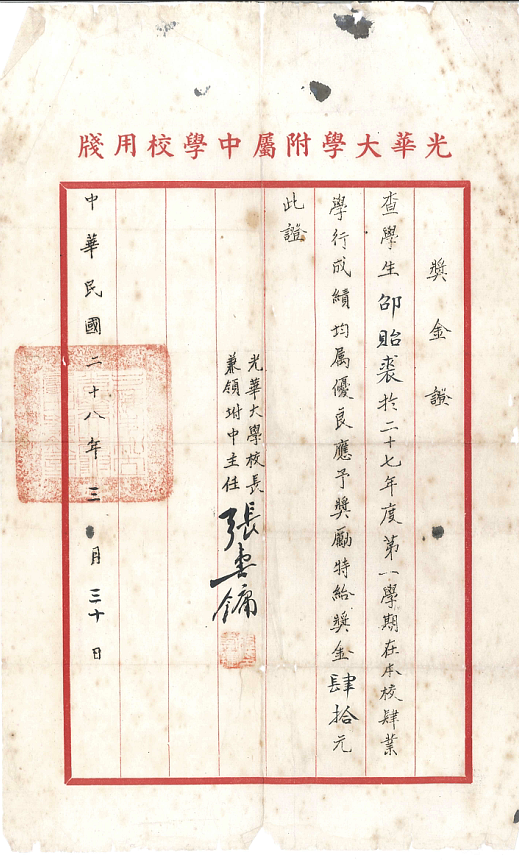 光華大學附屬中學校用牋
獎金證
查學生邵貽裘於二十七年度第一學期在本校肄業
學行成績均属優良應予獎勵特給獎金肆拾元
此證
光華大學校長
兼領坿中主任
張壽鏞
中華民國二十八年三月三十日